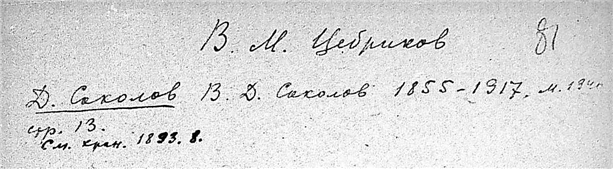 В. М. Цебриков 81
Д. Соколов В. Д. Соколов 1855-1917, М. 194
стр. 13.
См. хран. 1893. 8.